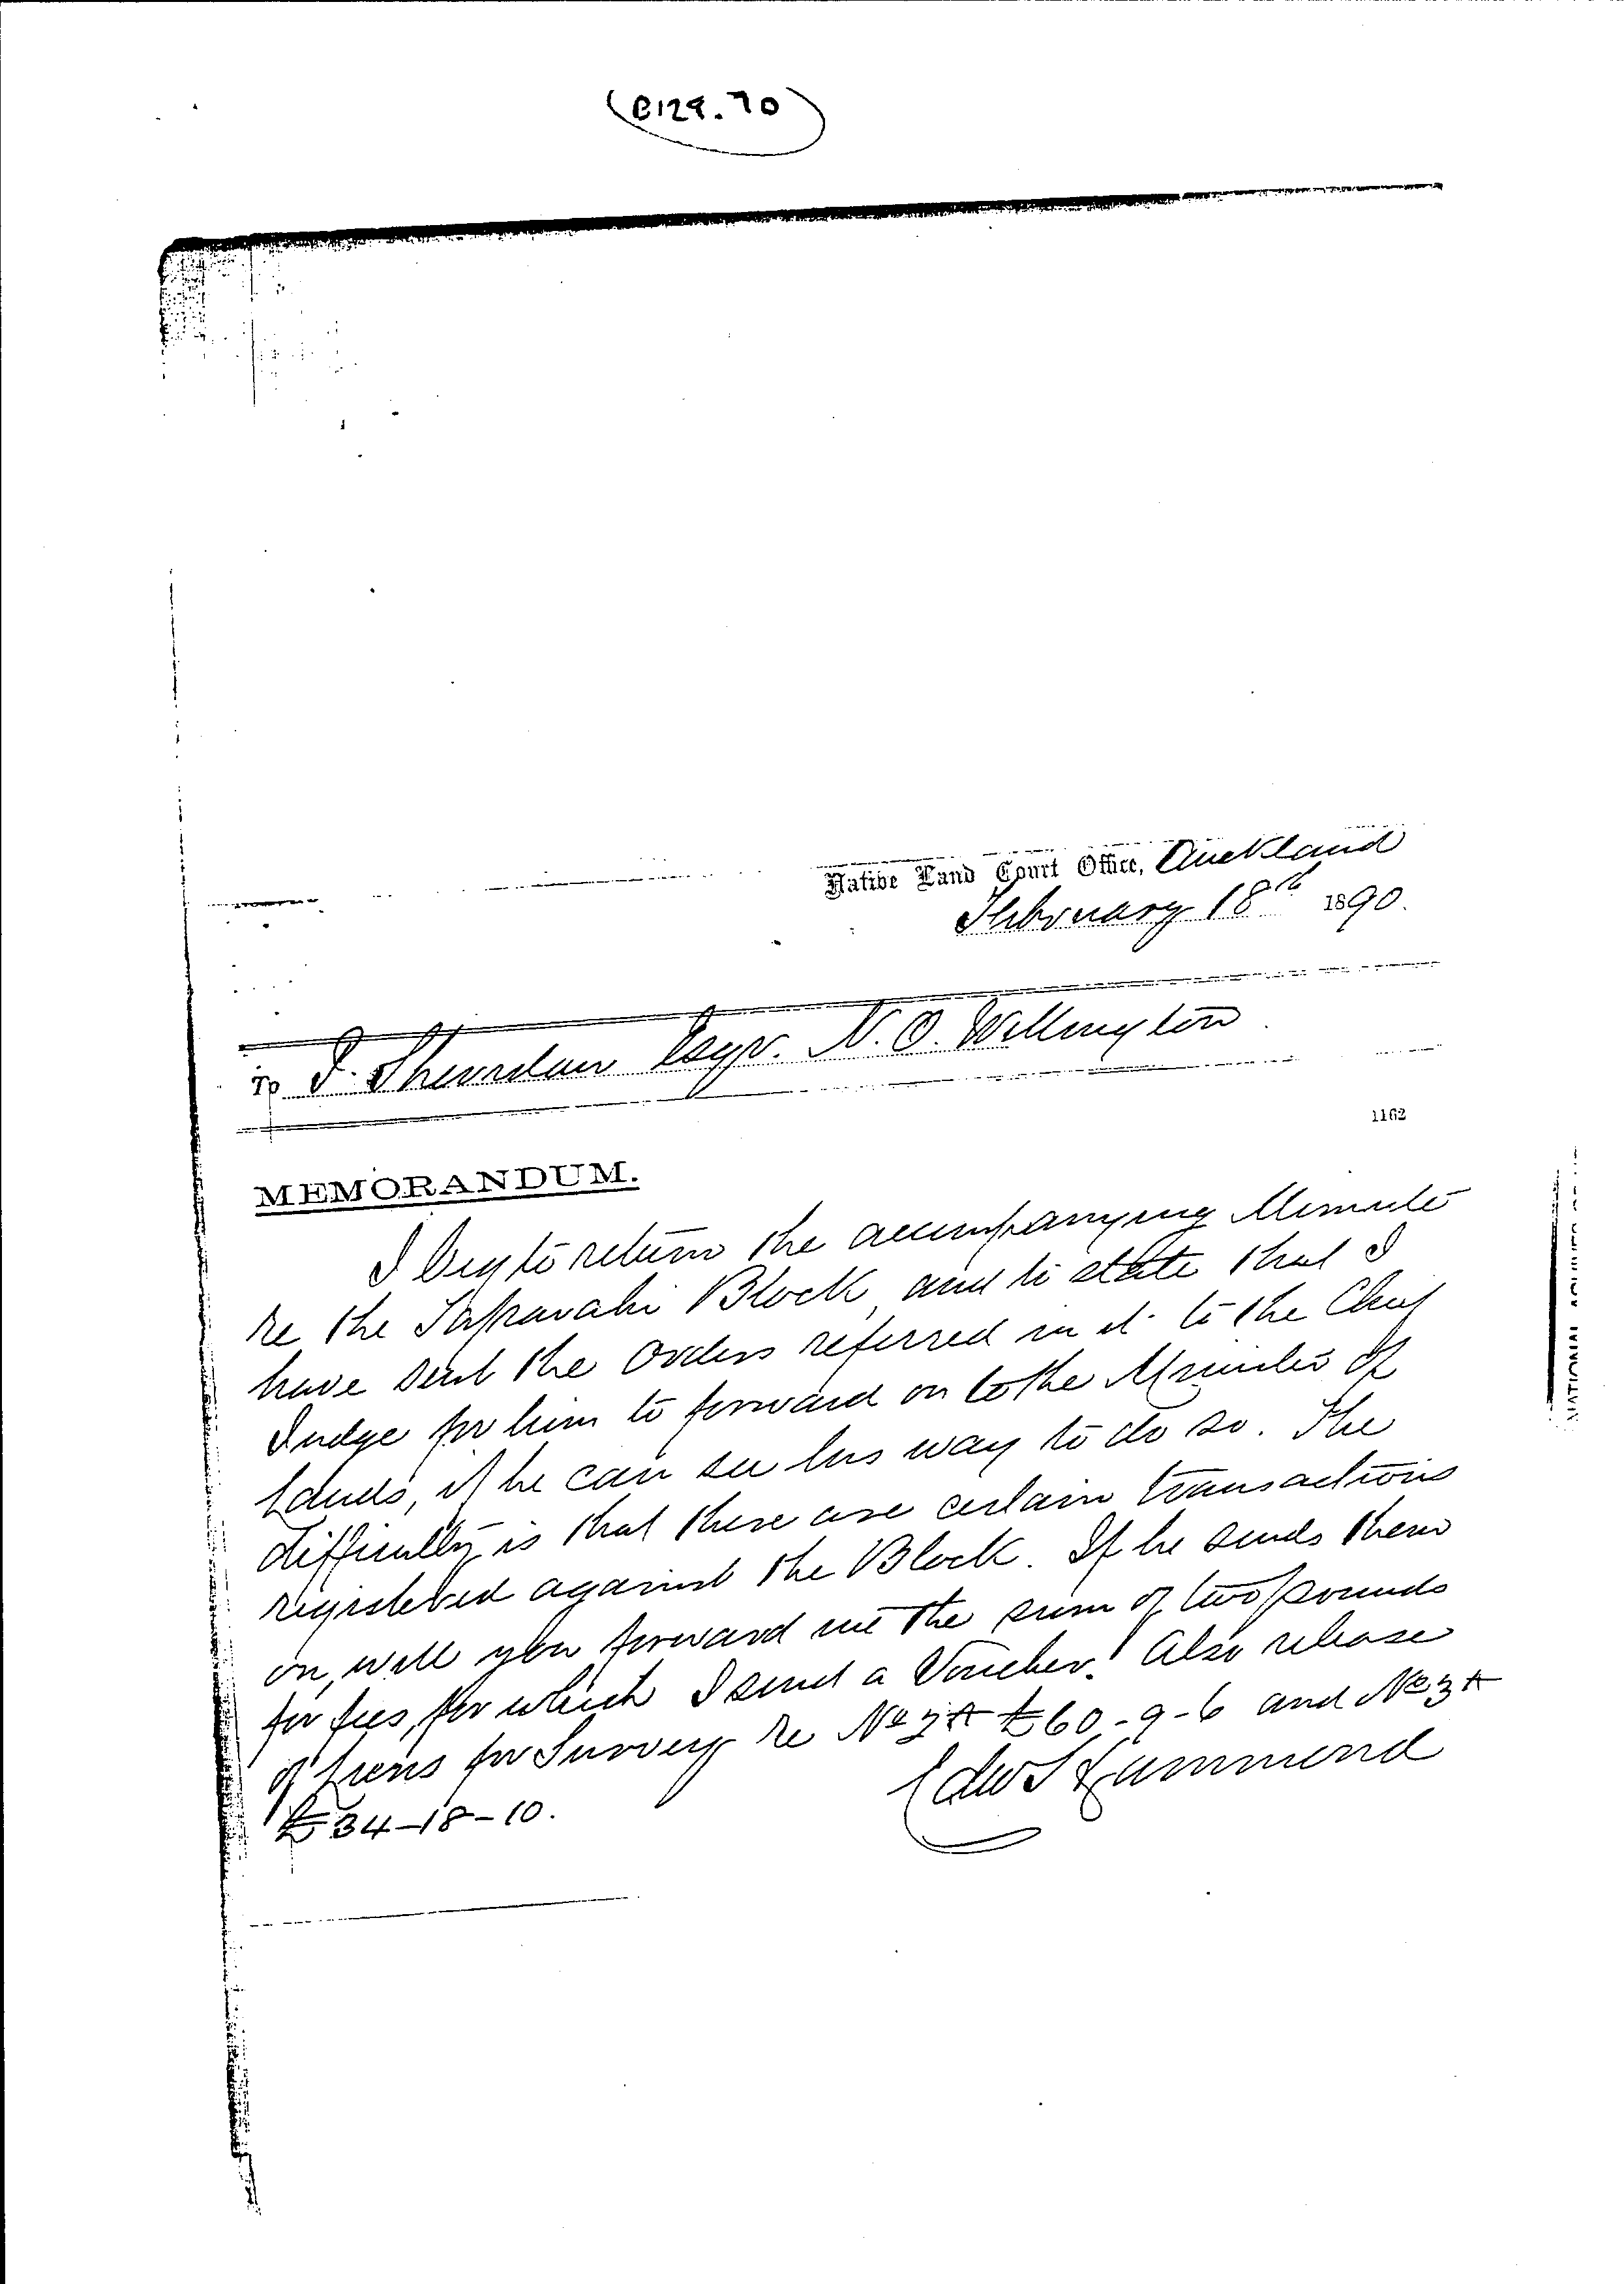 (B129.70)
Native Land Court Office, Auckland
February 18th 1890.
To P. Sheridan Esqr. N. O. Wellington
1162
MEMORANDUM.
I beg to return the accompanying Minute
re the Taparahi Block, and to state that I
have sent the Orders referred in it to the Chief
Judge for him to forward on to the Minister of
Lands, if he can see his way to do so. The
difficulty is that there are certain transactions
registered against the Block. If he sends them
on, will you forward me the sum of two pounds
for fees, for which I send a Voucher. Also release
of liens for Survey re No 2A £60-9-6 and No 3A
£34-18-10.
Edw Hammond
NATIONAL ARCHIVES